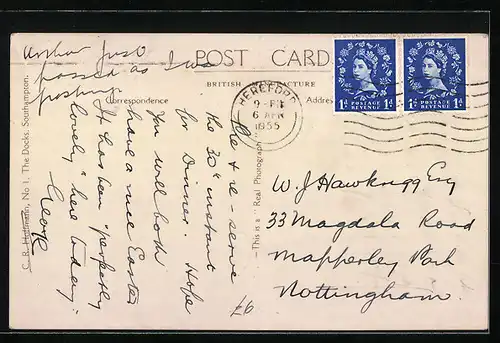 Arthur just
passed as I was
posting
POST CARD
BRITISH MANUFACTURE
Correspondence
Address
C. R. Hoffmann, No 1, The Docks, Southampton.
This is a "Real Photograph"
HEREFORD
9 - PM
6 APR
1955
1D POSTAGE REVENUE 1D
1D POSTAGE REVENUE 1D
re-serve
the 30th instant
for Dinner. Hope
you will both
have a nice Easter
It has been "perfectly
lovely" here today.
George
W. J. Hawkrigg Esq
33 Magdala Road
Mapperley Park
Nottingham.